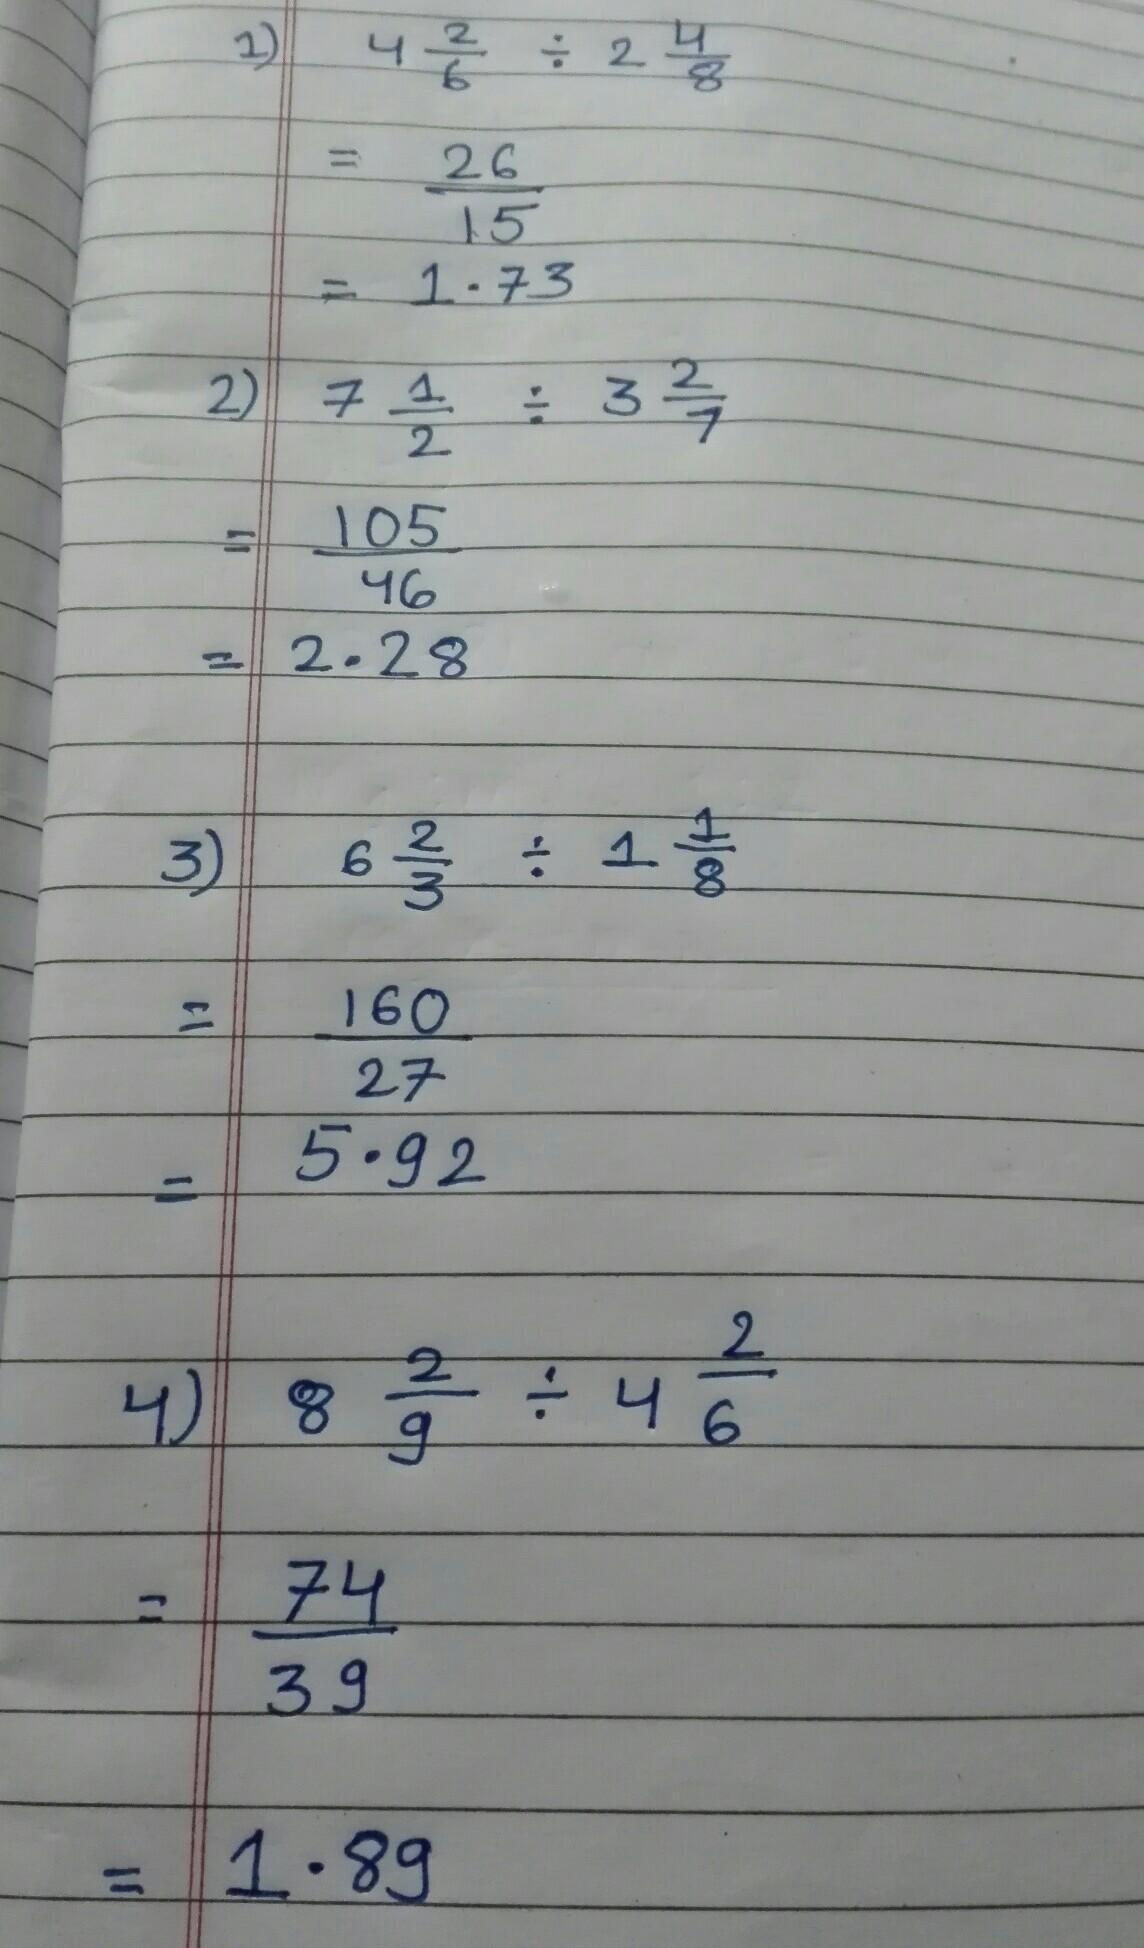 1) 4 2/6 ÷ 2 4/8
= 26/15
= 1.73
2) 7 1/2 ÷ 3 2/7
= 105/46
= 2.28
3) 6 2/3 ÷ 1 1/8
= 160/27
= 5.92
4) 8 2/9 ÷ 4 2/6
= 74/39
= 1.89